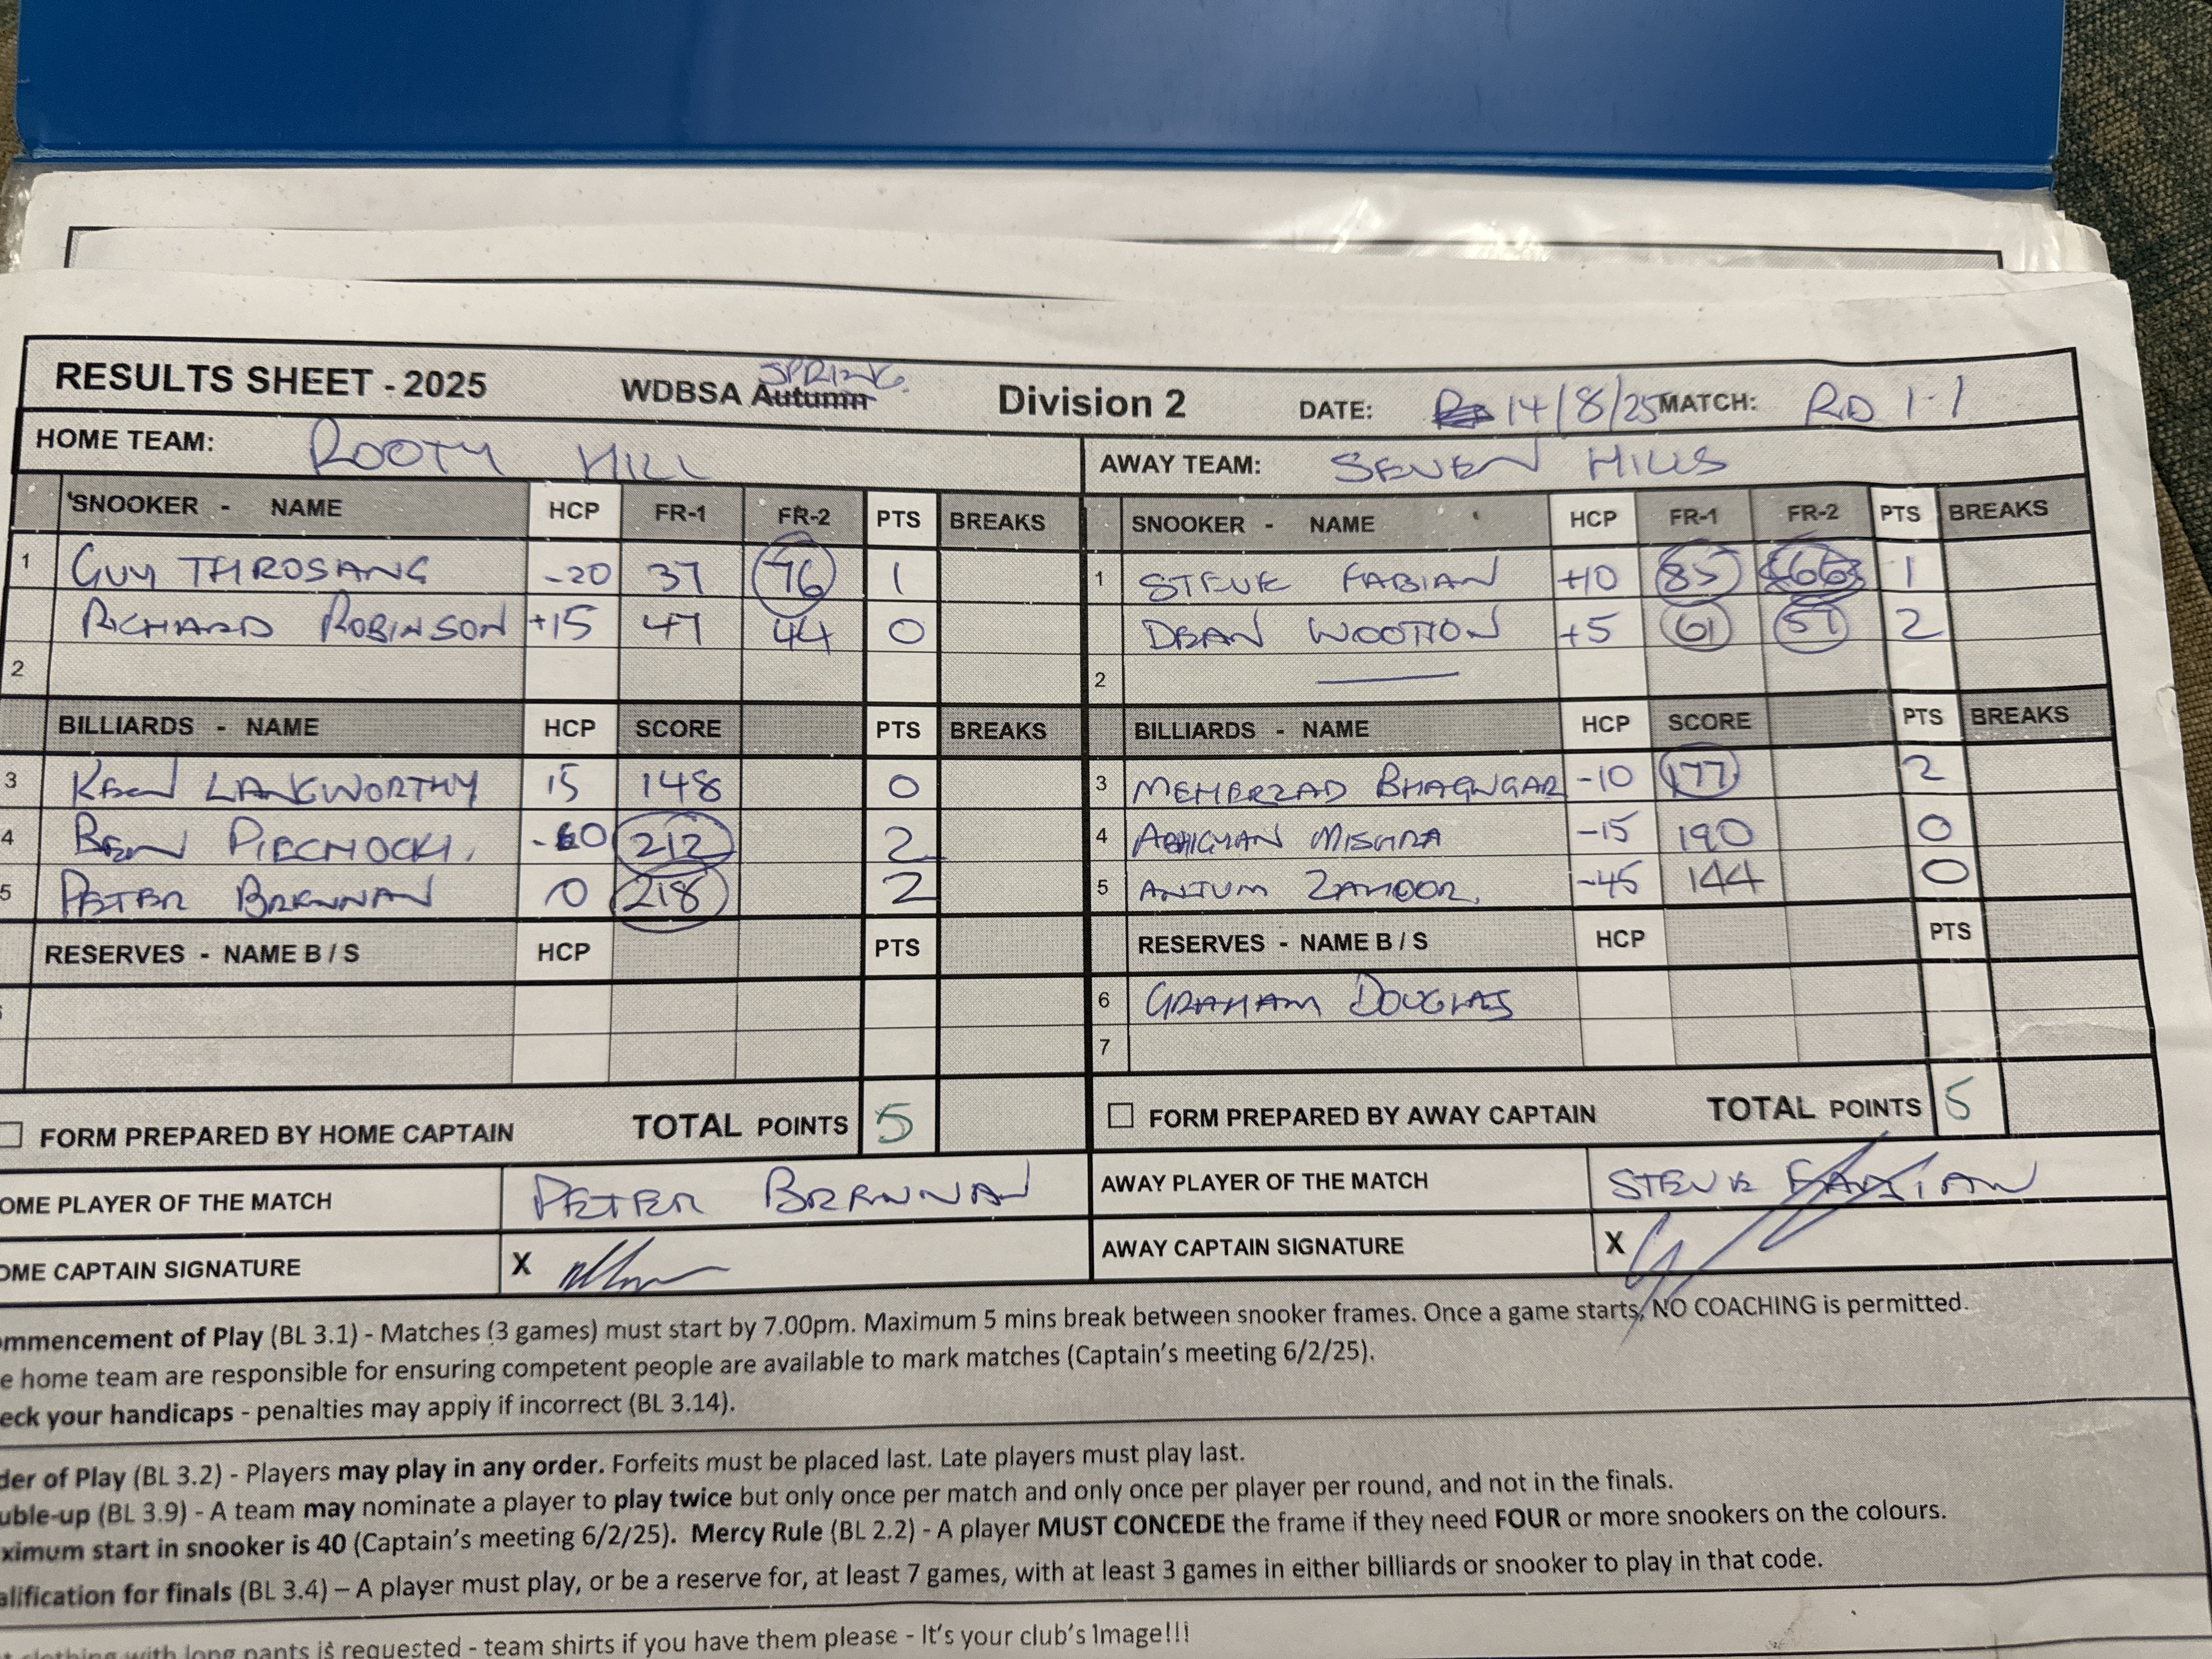 RESULTS SHEET - 2025 WDBSA Autumn SPRING Division 2 DATE: 14/8/25 MATCH: RD 1-1
HOME TEAM: ROOTY HILL AWAY TEAM: SEVEN HILLS
SNOOKER - NAME HCP FR-1 FR-2 PTS BREAKS SNOOKER - NAME HCP FR-1 FR-2 PTS BREAKS
1 GUY THROSANG -20 37 76 1 1 STEVE FABIAN +10 85 66 1
RICHARD ROBINSON +15 47 44 0 DEAN WOOTTON +5 61 57 2
2 2
BILLIARDS - NAME HCP SCORE PTS BREAKS BILLIARDS - NAME HCP SCORE PTS BREAKS
3 KEN LANGWORTHY 15 148 0 3 MEHERZAD BHAGWGAR -10 177 2
4 BEN PIECHOCKI. 212 2 4 MISHRA -15 190 0
5 PETER BRENNAN 0 218 2 5 ANJUM ZAHOOR. -45 144 0
RESERVES - NAME B / S HCP PTS RESERVES - NAME B / S HCP PTS
6 GRAHAM DOUGLAS
7
FORM PREPARED BY HOME CAPTAIN TOTAL POINTS 5 FORM PREPARED BY AWAY CAPTAIN TOTAL POINTS 5
OME PLAYER OF THE MATCH PETER BRENNAN AWAY PLAYER OF THE MATCH STEVE FABIAN
OME CAPTAIN SIGNATURE X AWAY CAPTAIN SIGNATURE X
ommencement of Play (BL 3.1) - Matches (3 games) must start by 7.00pm. Maximum 5 mins break between snooker frames. Once a game starts, NO COACHING is permitted.
e home team are responsible for ensuring competent people are available to mark matches (Captain's meeting 6/2/25).
eck your handicaps - penalties may apply if incorrect (BL 3.14).
der of Play (BL 3.2) - Players may play in any order. Forfeits must be placed last. Late players must play last.
uble-up (BL 3.9) - A team may nominate a player to play twice but only once per match and only once per player per round, and not in the finals.
ximum start in snooker is 40 (Captain's meeting 6/2/25). Mercy Rule (BL 2.2) - A player MUST CONCEDE the frame if they need FOUR or more snookers on the colours.
alification for finals (BL 3.4) – A player must play, or be a reserve for, at least 7 games, with at least 3 games in either billiards or snooker to play in that code.
clothing with long pants is requested - team shirts if you have them please - It's your club's 1mage!!!